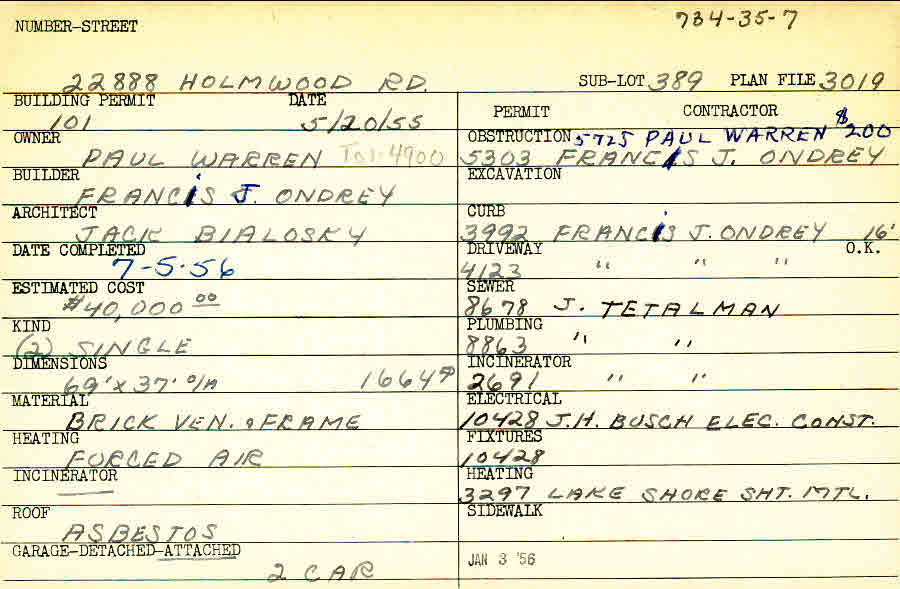 734-35-7
NUMBER-STREET
22888 HOLMWOOD RD. SUB-LOT 389 PLAN FILE 3019
BUILDING PERMIT DATE
101 5/20/55
OWNER
PAUL WARREN To 1-4900
BUILDER
FRANCIS J. ONDREY
ARCHITECT
JACK BIALOSKY
DATE COMPLETED
7-5-56
ESTIMATED COST
$40,000 00
KIND
(2) SINGLE
DIMENSIONS
69' x 37' o/a 1664
MATERIAL
BRICK VEN. & FRAME
HEATING
FORCED AIR
INCINERATOR
ROOF
ASBESTOS
GARAGE-DETACHED-ATTACHED
2 CAR
PERMIT CONTRACTOR
OBSTRUCTION 5725 PAUL WARREN $200
5303 FRANCIS J. ONDREY
EXCAVATION
CURB
3992 FRANCIS J. ONDREY 16'
DRIVEWAY O.K.
4123 " " "
SEWER
8678 J. TETALMAN
PLUMBING
8863 " "
INCINERATOR
2691 " "
ELECTRICAL
10428 J.H. BUSCH ELEC. CONST.
FIXTURES
10428
HEATING
3297 LAKE SHORE SHT. MTL.
SIDEWALK
JAN 3 '56